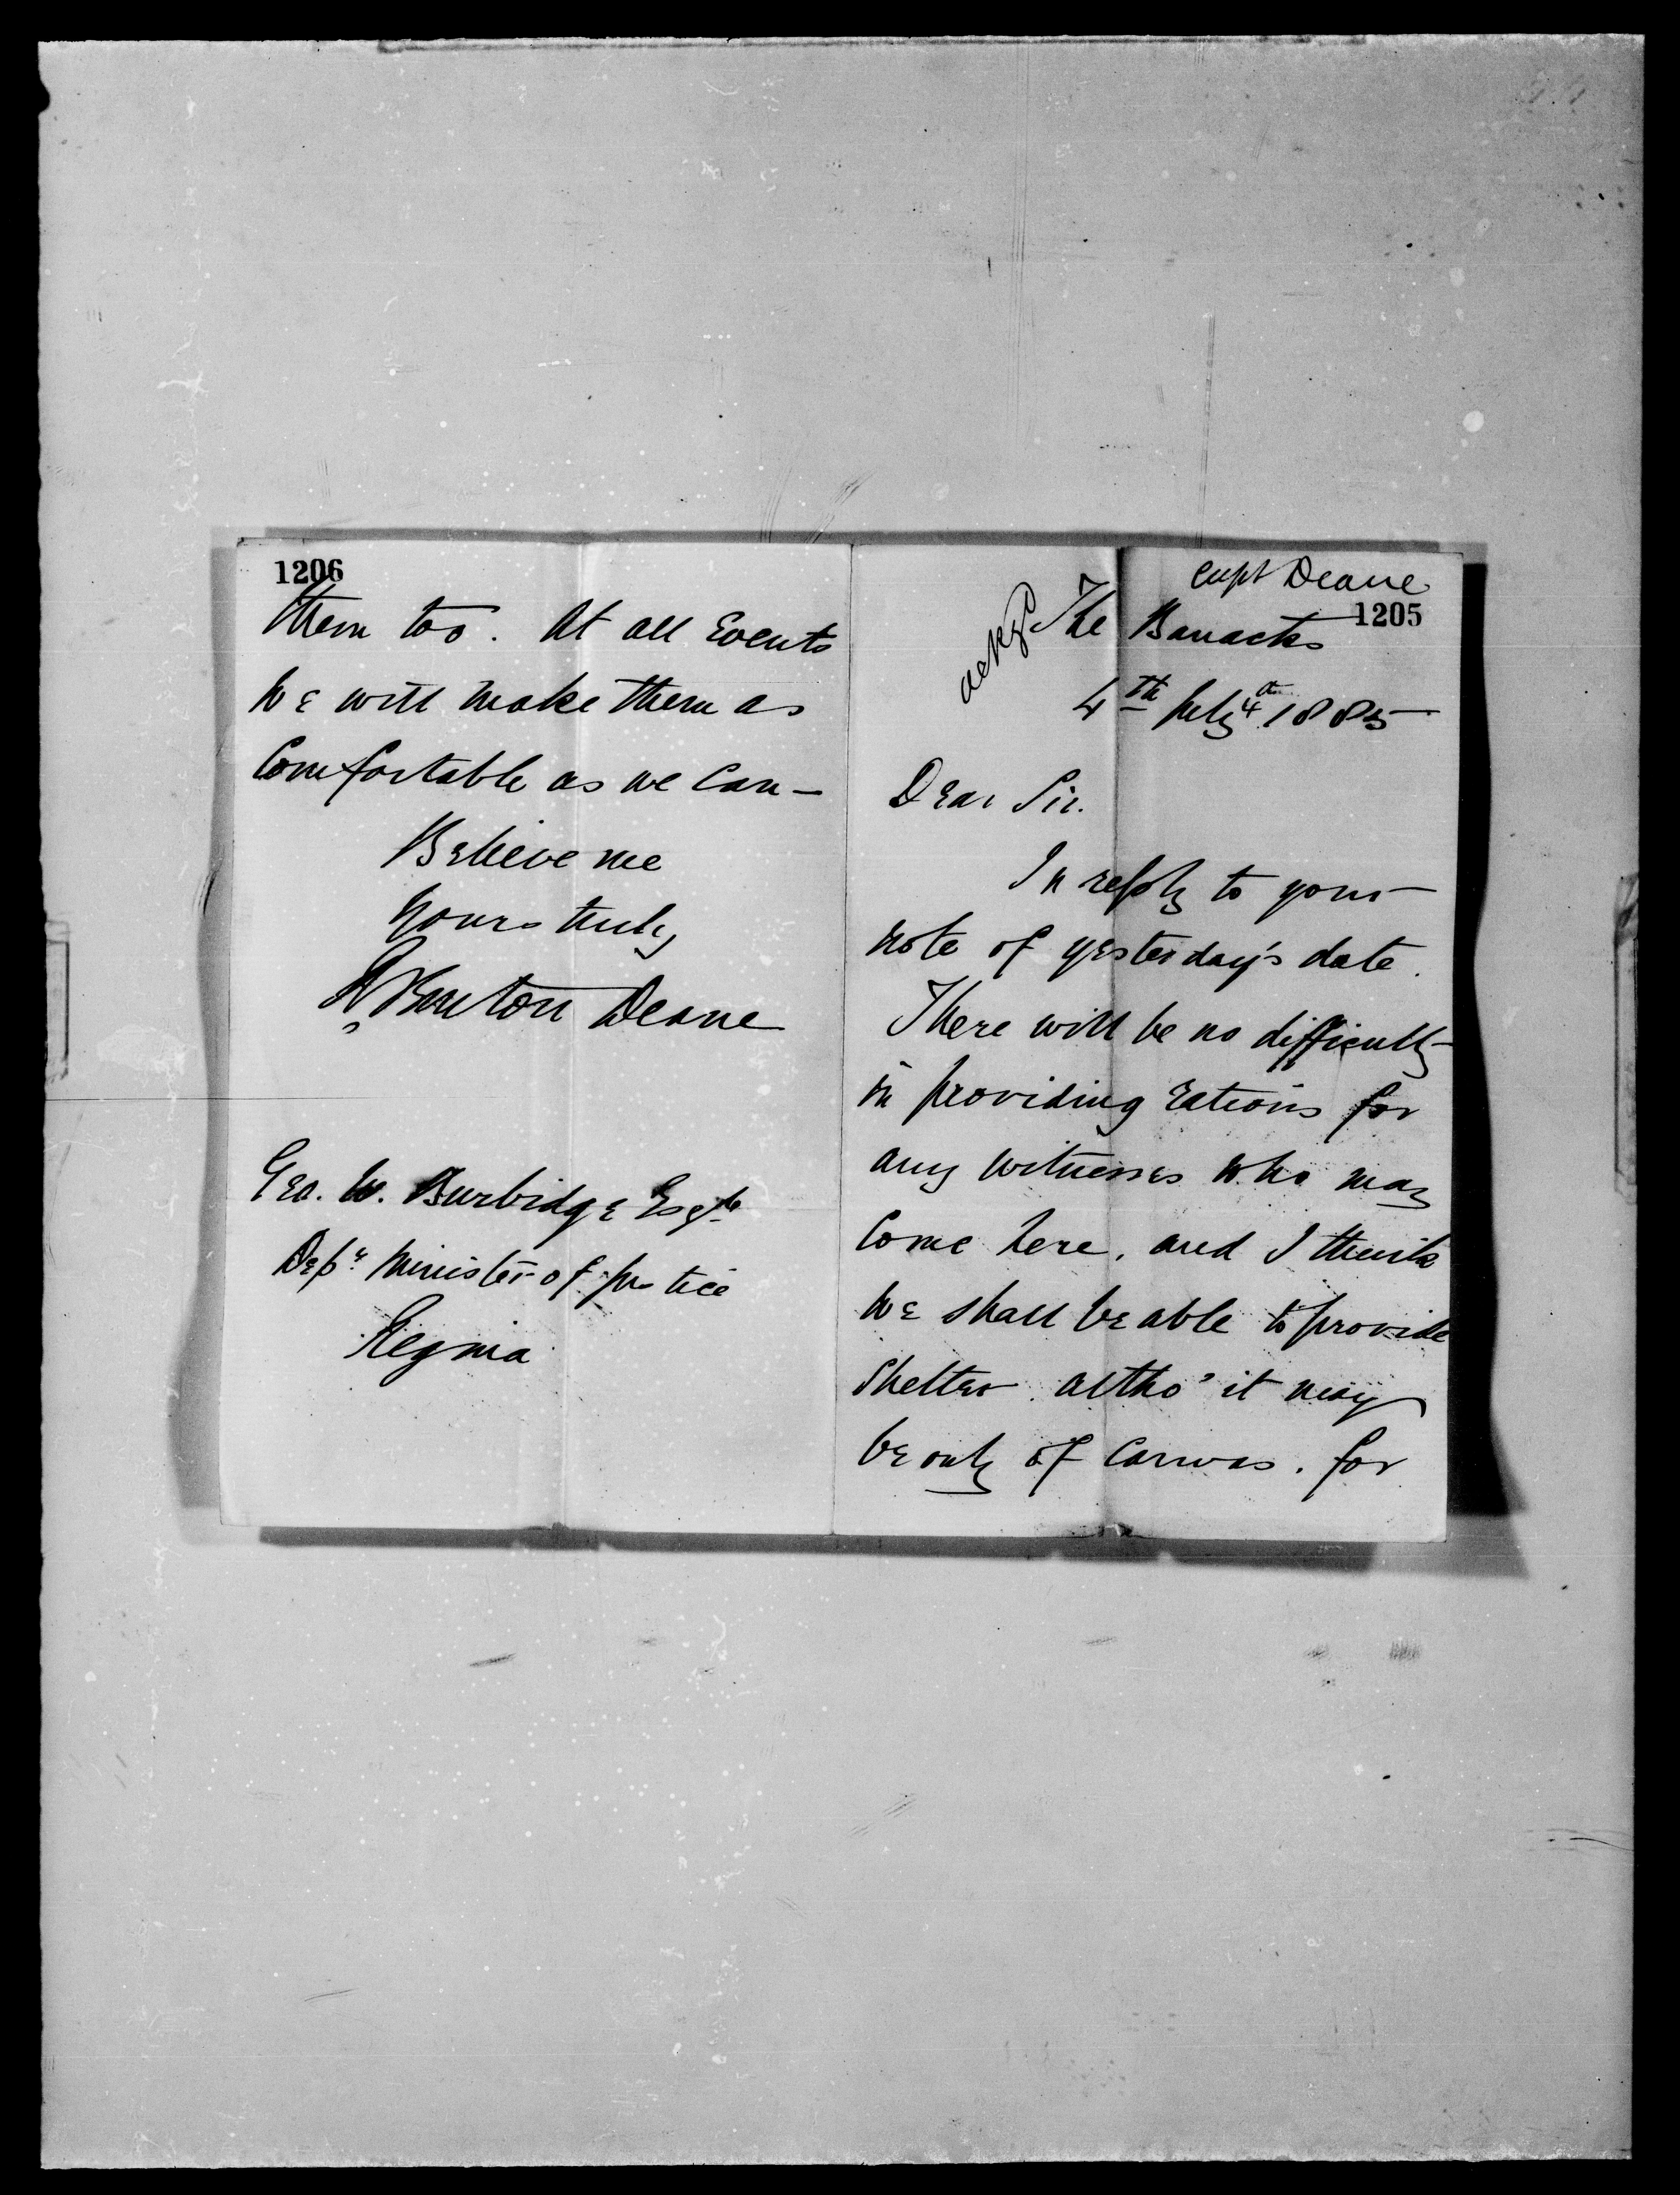 Capt Deane
1205
ackgd
The Barracks
4th July 4th 1885
Dear Sir.
In reply to your
note of yesterday's date.
There will be no difficulty
in providing rations for
any witnesses who may
come here, and I think
we shall be able to provide
shelter. altho' it may
be only of canvas. for
1206
them too. At all Events
We will make them as
Comfortable as we can —
Believe me
Yours truly
R Burton Deane
Geo. W. Burbidge Esqre
Depy Minister of Justice
Regina